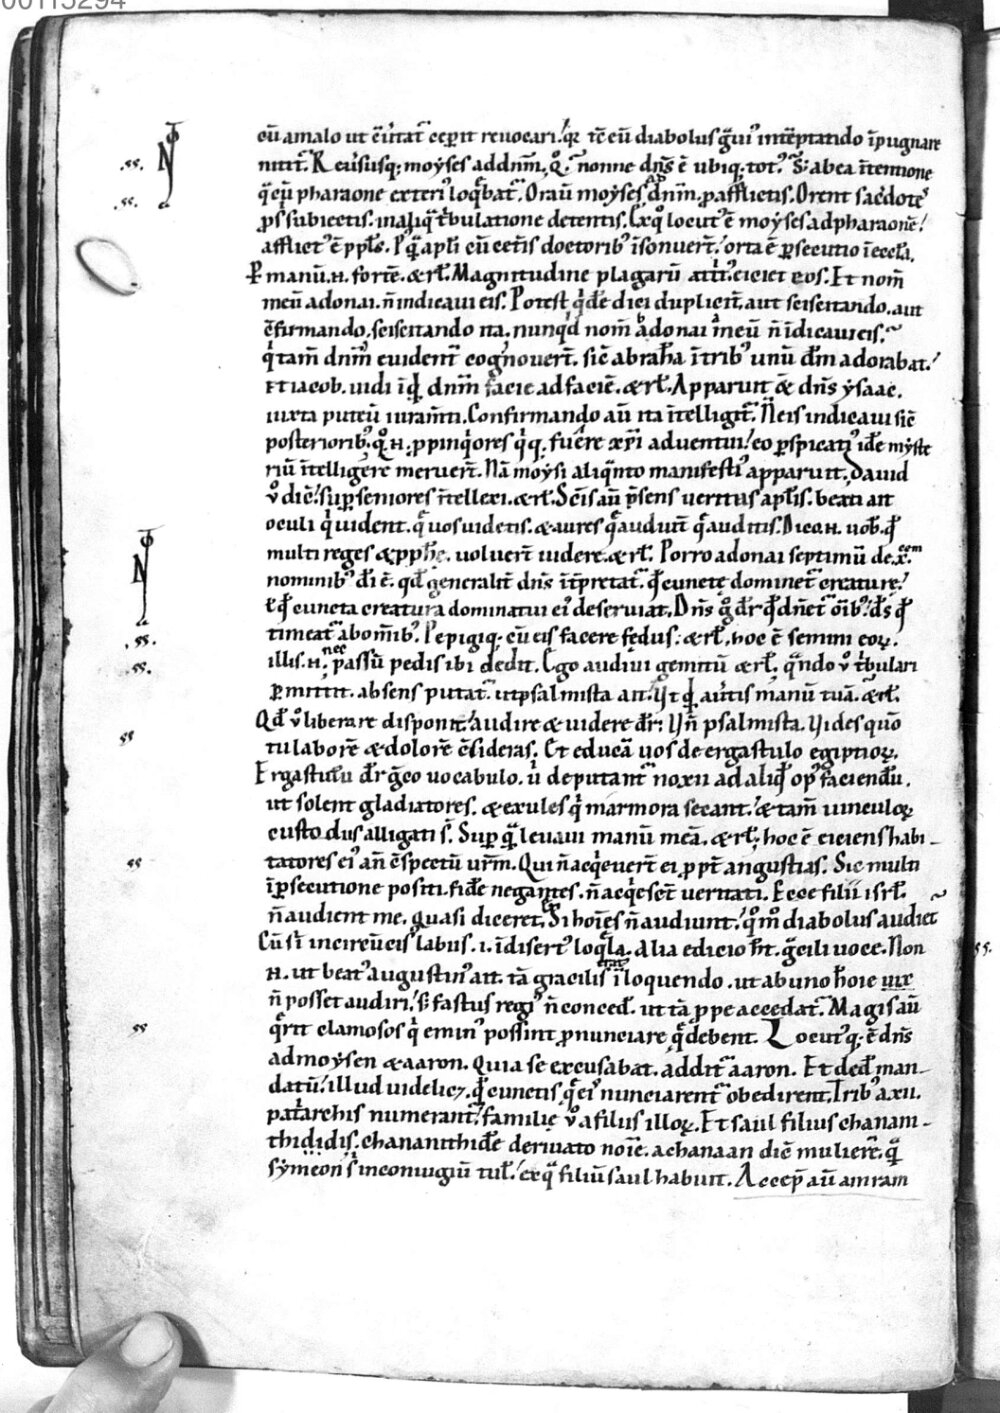 00115294
cū amalo ut ēūtat̄ cep̄it reuocari. qr̄ tc̄ eū diabolus ḡui' intēptando īpugnare
nitit̄. Reuersusq; moyses addnm̄. nonne dn̄s ē ubiq. tot'. abea ītentione
q̄ cū pharaone exteri' loq̄bat̄. Orauī moyses dn̄m. p afflictis. Orent sacdotes
p s' subiectis. inaliq̄ t'bulatione detentis. Exq̊ locut' ē moyses adpharaonē
afflict' ē ppl̄s. apl̄i cū cet̄is doctorib' orta ē p̱secutio īeccl̄a.
P̱ manū .n. fortē. &rl̄. Magnitudine plagarū eiciet eos. Et nom̄
meū adonai. n̄ indicaui eis. Potest dupliciť. aut sciscitando. aut
c̄firmando. sciscitando ita. nunqd nom̄ adonai meū n̄ īdicaui eis.
q̄tam dn̄m euident̄ cognouert̄. sic̄ abrahā ītrib' unū dm̄ adorabat.
Et iacob. uidi dn̄m facie adfaciē. &rl̄. Apparuit & dn̄s ysaac.
iuxta puteū iuram̄ti. Confirmando aū ita ītelligit̄. Neis indicaui sic̄
posteriorib'. q̊ .n. ppinq̊ores fuēre xp̄i aduentui. eo p̱spicati' myste
riū ītelligere meruert̄. Nā moysi aliq̄nto manifesti' apparuit. Dauid
u̇ dic̄. sup̱ seniores ītellexi. &rl̄. Sc̄is aū p̄sens ueritas apl̄is. beati ait
oculi q̇ uident. q̄ uos uidetis. & aures q̄ audiunt q̄ auditis. Dico .n. uob. qd̄
multi reges & pphē. uoluert̄ uidere. &rl̄. Porro adonai septimū de .x. cem
nominib' dī ē. qd̄ generalit̄ dn̄s īt̄pretat̄. qd̄ cunctę dominet̄ creaturę.
ł qd̄ cuncta creatura dominatui ei' deseruiat. Dn̄s dr̄ qd̄ dn̄et̄ oīb'. ds̄ qd̄
timeat̄ abom̄ib'. Pepigiq; cū eis facere fędus. &rl̄. hoc ē semini eoꝝ.
illis .n. nec passū pedis ibi dedit. Ego audiui gemitū &rl̄. q̄ndo u̇ t'bulari
p̱mittit. absens putat̄. ut psalmista ait. Ut qd auītis manū tuā. &rl̄.
Qd̄ u̇ liberare disponit. audire & uidere dr̄. Vn̄ psalmista. Vides qm̄
tu laborē & dolorē c̄sideras. Et educā uos de ergastulo egiptioꝝ.
Ergastulū dr̄ gc̄o uocabulo. u̇ deputant̄ noxii ad aliqd̄ op' faciendū.
ut solent gladiatores. & exules q̇ marmora secant. & tam̄ uinculoꝝ
custodus alligati s̄. Sup̱ q̄ leuaui manū meā. &rl̄. hoc ē eiciens habi-
tatores ei' an̄ c̄spectū ur̄m. Qui n̄ acq̇euert̄ ei ppt̄ angustias. Sic multi
īp̱secutione positi. fidē negantes. n̄ acq̇esc̄t ueritati. Ecce filii isrl̄.
n̄ audient me. quasi diceret. Si hoīes n̄ audiunt. qm̊ diabolus audiet
Cū sī incircūcis labus. i. īdisert' loq̄la. alia edicio ht̄. ḡcili uoce. Non
.n. ut beat' augustin' ait. tā gracilis ī loquendo. ut abuno hoīe uix
n̄ posset audiri. s; fastus regi' n̄ conced̄. ut tā ppe accedat̄. Magis aū
q̄rit clamosos q̇ emin' possint p̱nunciare q̄ debent. Locut'q; ē dn̄s
admoysen & aaron. Quia se excusabat. addit̄ aaron. Et ded̄ man-
datū. illud uidelicꝫ. qd̄ cunctis. q̄ ei' nunciarent̄ obedirent. Trib' axii.
pat̄archis numerant̄. familię u̇ a filiis illoꝝ. Et saul filius chanani-
thididis. chananithidē deriuato noīe. achanaan dic̄ mulierē. q̄
symeon s̄ inconiugiū tul̄. exq̄ filiū saul habuit. Accep̄ aū amram